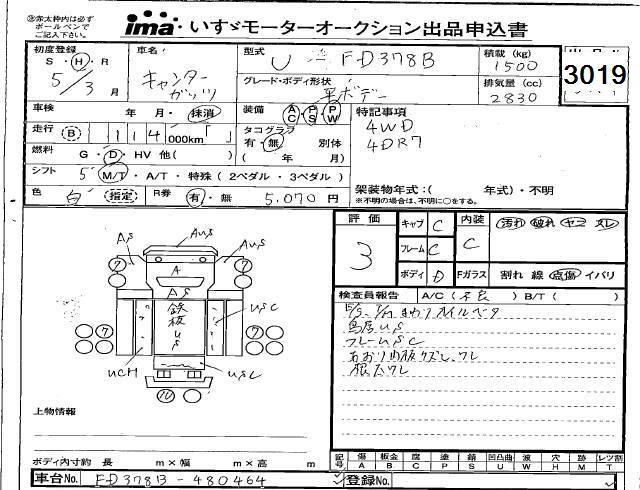 ㊟赤太枠内は必ず
ボールペンで
ご記入下さい。
ima いすゞモーターオークション出品申込書
初度登録
S・H・R
5/3月
車名
キャンター
ガッツ
型式
U-FD378B
グレード・ボディ形状
平ボデー
積載(kg)
1500
排気量(cc)
2830
3019
車検 年 月・抹消
走行 B 114 000km「 」
燃料 G・D・HV 他( )
シフト 5 M/T・A/T・特殊(2ペダル・3ペダル)
色 白 (指定) R券 有・無 5,070円
装備 AC・PS・PW
タコグラフ
有・無 別体
( 年 月)
特記事項
4WD
4DR7
架装物年式:( 年式)・不明
※不明の場合は、不明に○をする。
評価
3
キャブ C
フレーム C
ボディ D
内装
C
Fガラス
汚れ 破れ ヤニ スレ
割れ 線 点傷 イバリ
検査員報告 A/C(不良) B/T( )
鳥居US
フレームUSC
あおり内板クズレ、ワレ
根太ワレ
AS
AUS
A
AS
鉄板US
USC
UCH
USC
7
7
7
7
10
上物情報
ボディ内寸約 長 m×幅 m×高 m
記号 傷 板金 腐 塗 錆 凹凸曲 波 穴 跡 レツ割
A B C P S U W H M T
車台No. FD378B-480464
登録No.